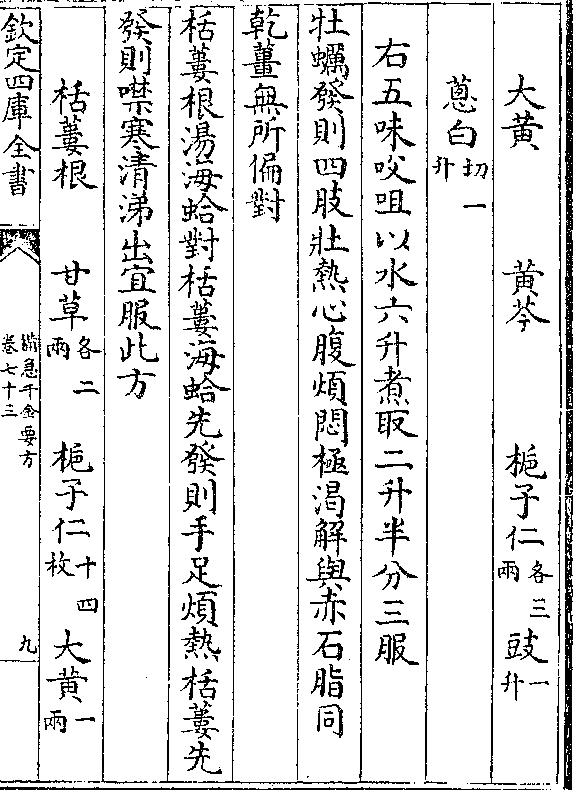 大黄 黄芩 梔子仁各三兩 豉一升
蔥白切一升
右五味㕮咀以水六升煮取二升半分三服
牡蠣發則四肢壯熱心腹煩悶極渴解與赤石脂同
乾薑無所偏對
栝蔞根湯海蛤對栝蔞海蛤先發則手足煩熱栝蔞先
發則噤寒清涕出宜服此方
栝蔞根 甘草各二兩 梔子仁十四枚 大黄一兩
欽定四庫全書 備急千金要方卷七十三 九